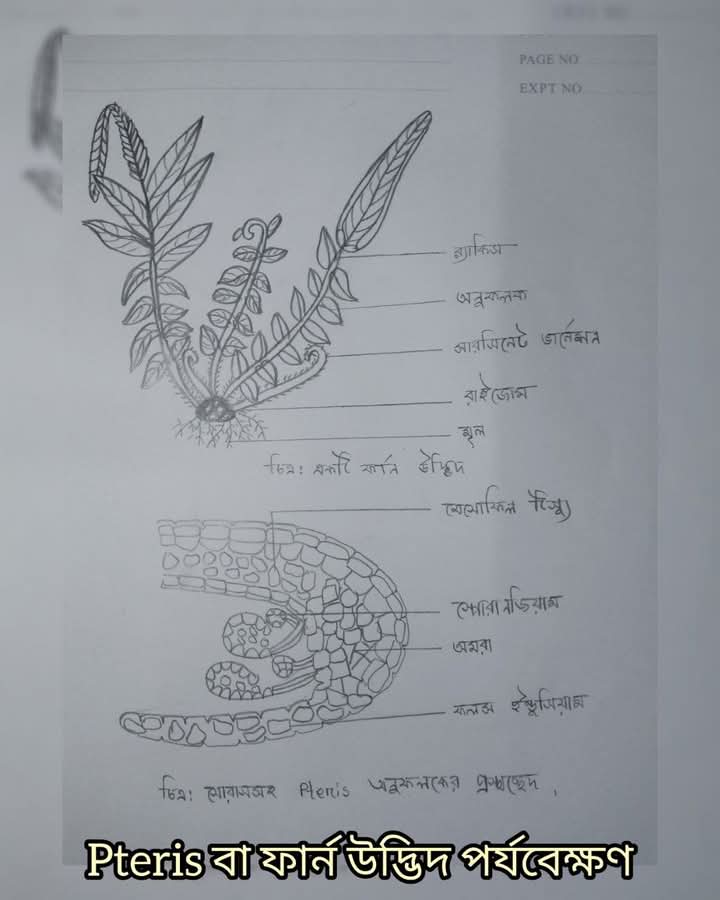 PAGE NO
EXPT NO
র‍্যাকিস
অনুফলক
সারসিনেট ভার্নেশন
রাইজোম
মূল
চিত্র: একটি ফার্ন উদ্ভিদ
মেসোফিল টিস্যু
স্পোরানজিয়াম
অমরা
ফলস ইন্ডুসিয়াম
চিত্র: সোরাসসহ Pteris অনুফলকের প্রস্থচ্ছেদ।
Pteris বা ফার্ন উদ্ভিদ পর্যবেক্ষণ